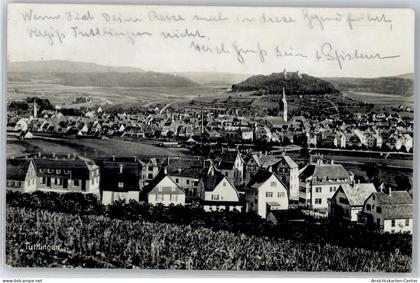 Wenn Dich Deine Reise mal in diese Gegend führt,
vergiß Tuttlingen nicht.
Herzl. Gruß Dein
Tuttlingen
Ansichtskarten-Center